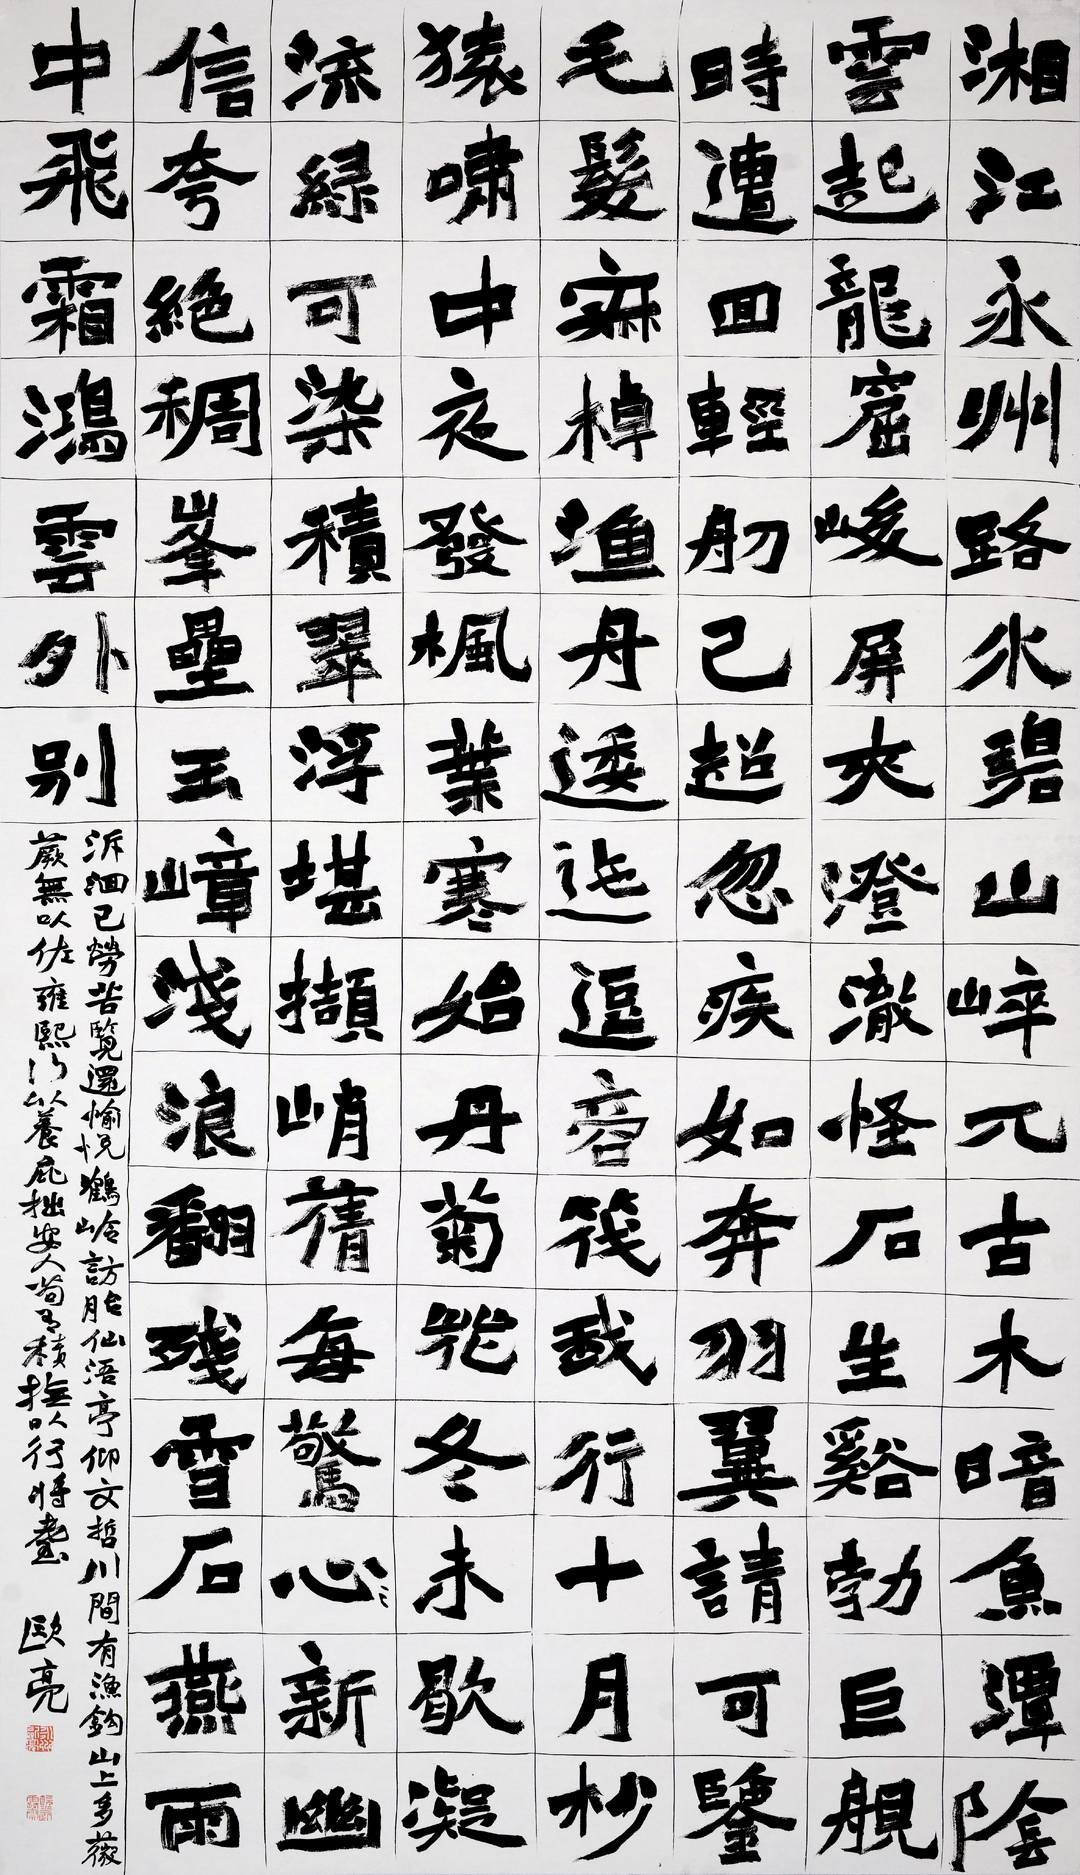 湘江永州路水碧山崒兀古木暗魚潭陰
雲起龍窟峻屏夾澄澈怪石生谿勃巨舰
時遭回輕舠已超忽疾如奔羽翼請可鑒
毛髮寂棹漁舟逶迤逗商筏我行十月杪
猿嘯中夜發楓葉寒始丹菊花冬未歇凝
流綠可染積翠浮堪擷峭蒨每驚心新幽
信夸絕稠峯壘玉嶂淺浪翻殘雪石燕雨
中飛霜鴻雲外別
泝洄已勞苦覽還愉悅鶴嶺訪胎仙浯亭仰文哲川間有漁釣山上多薇
蕨無以佐雍熙以養疵拙安人苟有積撫以行將
歐亮